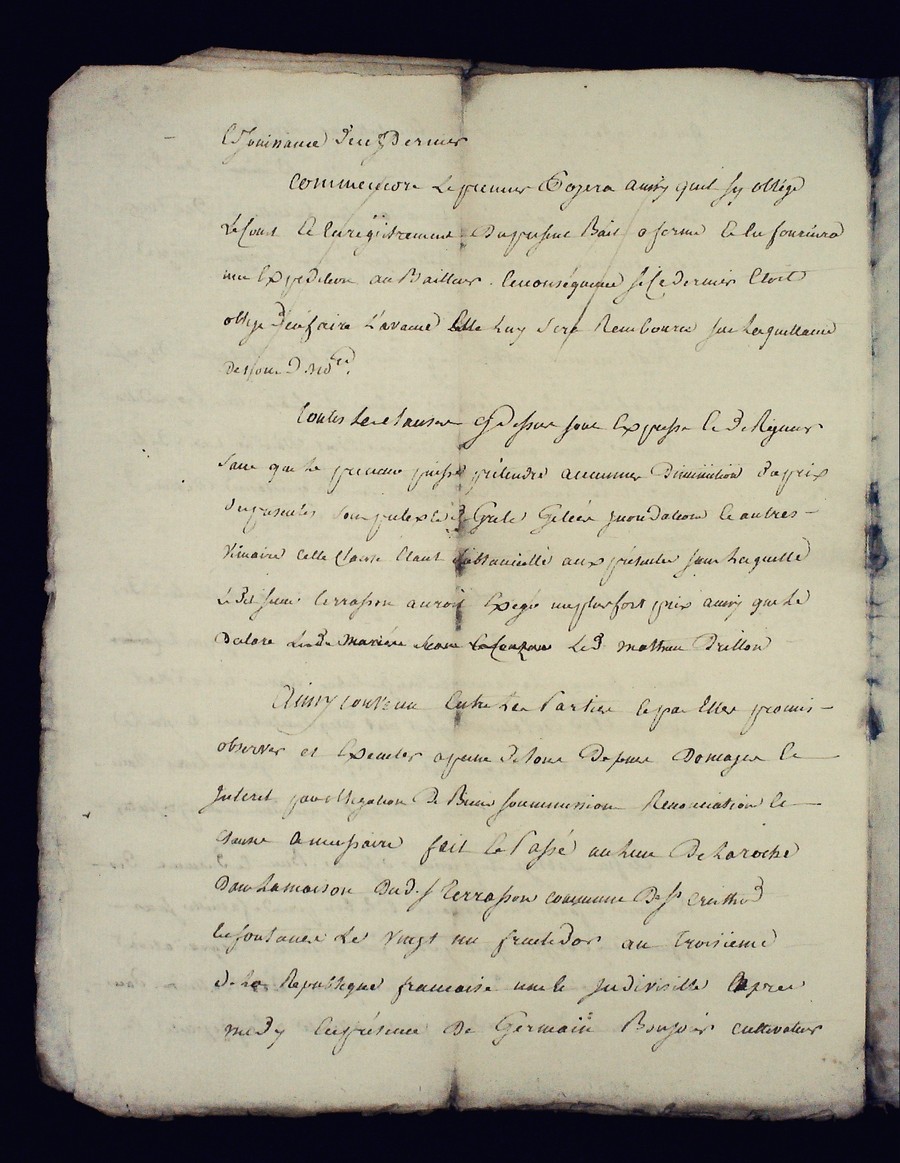 Jouissance dece Dernier
Commencera Le preneur Payera ainsy quil sy oblige
Le Cout et Enregistrement Dupresent Bail a ferme et En fournira
une Expedition au Bailleur. Enconsequence si Ce dernier Etoit
oblige Den faire L'avance Elle Luy Sera Remboursé sur Laquittance

Toutes Les clauses cydessus sont Expresse et De Rigueur
sans que Le preneur puisse prétendre aucunne Diminution Du prix
Dupresentes sous pretexte De Grele Gelées Jnondations et autres
vimaire cette Clause Etant substancielle aux présentes sans Laquelle
Le Dit sieur Terrasson auroit Exegé un plus fort prix ainsy que Le
Declare Led mathieu Drillon
Ainsy convenu Entre Les Parties et par Elles promis
observer et Executer apeine de tous Depens Domages et
Jnteret par obligation De Biens soummission Renonciation et
Clause Necessaire fait et Passé au Lieu De Laroche
Dans Lamaison Dud. s. Terrasson commune De St
Le vingt un fructidor an Troisieme
De La Republique francaise une et Jndivisible apres
medy En présence De Germain Bonjour cultivateur